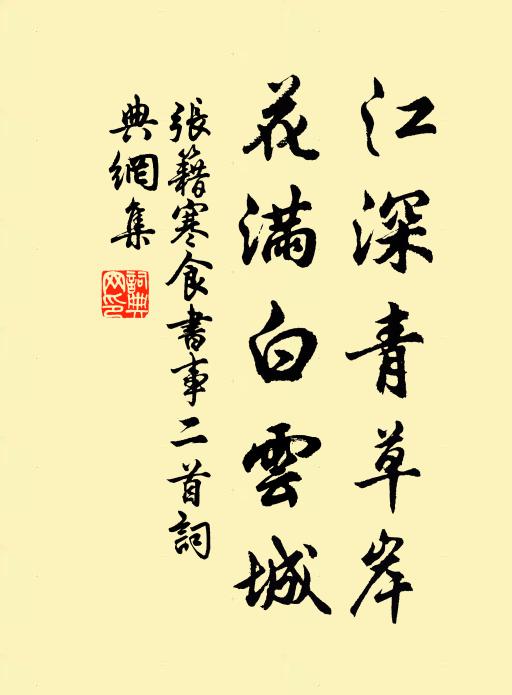 江深青草岸
花满白雲城
張籍寒食書事二首詞
典網集
詞典
网印